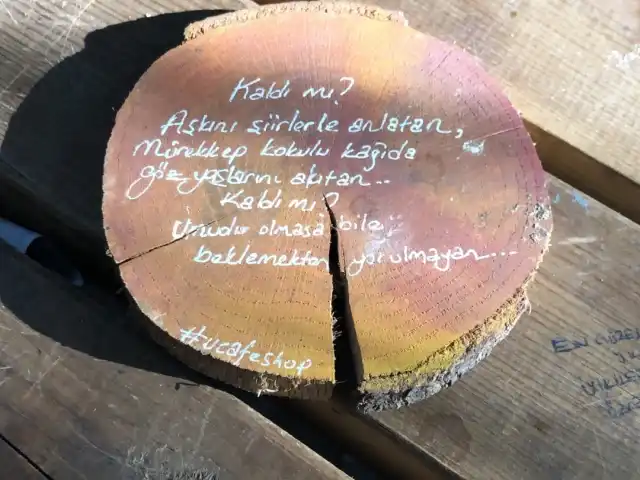 Kaldı mı?
Aşkını şiirlerle anlatan,
Mürekkep kokulu kağıda
göz yaşlarını akıtan..
Kaldı mı?
Umudu olmasa bile,
beklemekten yorulmayan...
#ucafeshop